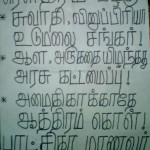 சுவாதி, வினுப்பிரியா
உடுமலை சங்கர்!
* ஆள, அருகதையிழந்தது
அரசு கட்டமைப்பு!
* அமைதிகாக்காதே
ஆத்திரம் கொள்!
மாணவர்